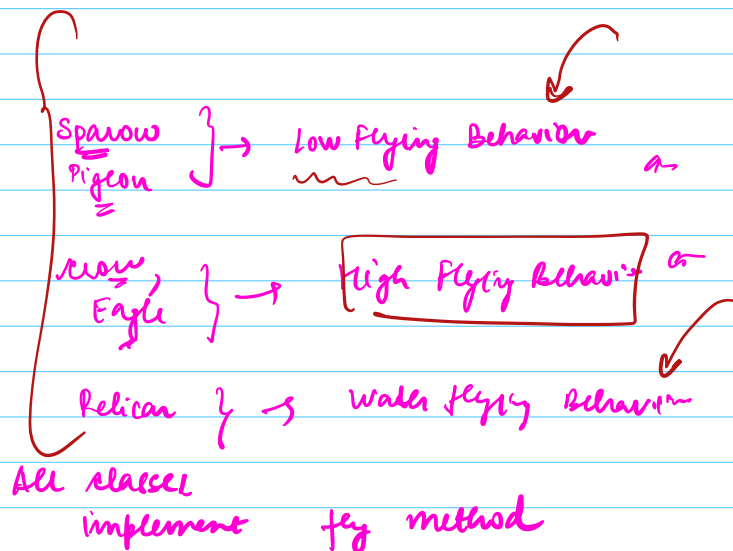 Sparow
Pigeon
→ Low Flying Behavior
crow,
Eagle
→ High Flying Behavior
Pelican → Water flying Behavior
All classes
implement fly method